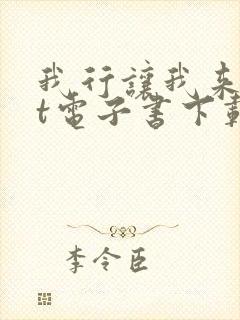 我行讓我來
t電子書下載
李令臣